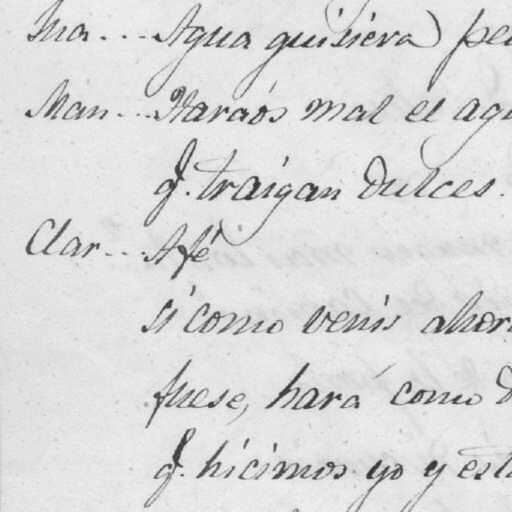 Ina... Agua quisiera
Man... Haraos mal el agu
q. traigan dulces.
Clar... A fé
si como venis ahor
fuese, hará como d
q. hicimos yo y est